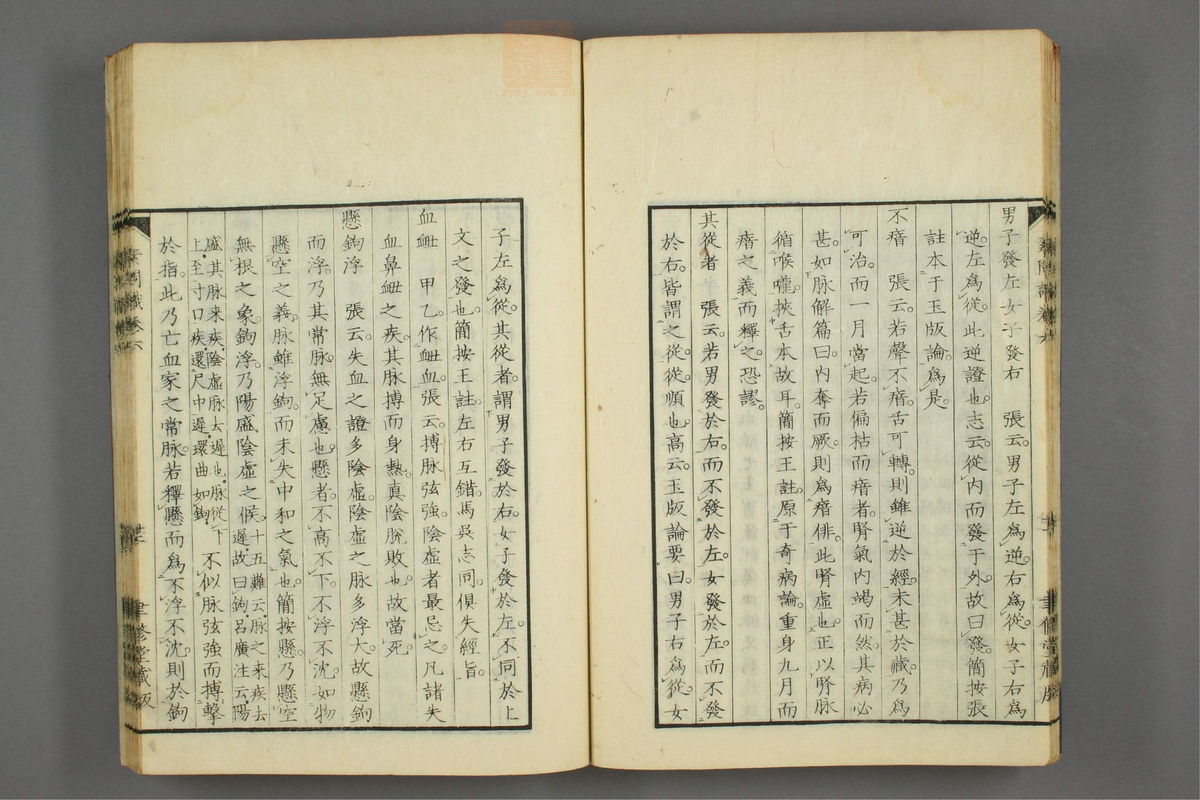 男子發左女子發右　張云男子左爲逆。右爲從。女子右爲
逆。左爲從。此逆證也。志云。從內而發于外。故曰發。簡按張
註本于玉版論。爲是。
不瘖　張云。若聲不瘖。舌可轉。則雖逆於經。未甚於藏。乃爲
可治。而一月當起。若偏枯而瘖者。腎氣內竭而然。其病必
甚。如脉解篇曰。內奪而厥。則爲瘖俳。此腎虛也。正以腎脉
循喉嚨。挾舌本故耳。簡按王註。原于奇病論。重身九月而
瘖之義而釋之。恐謬。
其從者　張云。若男發於右。而不發於左。女發於左。而不發
於右。皆謂之從。從。順也。高云。玉版論要曰。男子右爲從。女
子左爲從。其從者。謂男子發於右。女子發於左。不同於上
文之發也。簡按王註。左右互錯。馬吳志同。俱失經旨。
血衄　甲乙。作衄血。張云。搏脉弦強。陰虛者最忌之。凡諸失
血鼻衄之疾。其脉搏而身熱。真陰脫敗也。故當死。
懸鉤浮　張云。失血之證多陰虛。陰虛之脉多浮大。故懸鉤
而浮。乃其常脉。無足慮也。懸者。不高不下。不浮不沈。如物
懸空之義。脉雖浮鉤。而未失中和之氣也。簡按懸。乃懸空
無根之象。鉤浮。乃陽盛陰虛之候。十五難云。脉之來疾去
遲。故曰鉤。呂廣注云。陽
盛其脉來疾。陰虛脉去遲也。脉從下
上至寸口疾。還尺中遲。環曲如鉤。不似脉弦強而搏擊
於指。此乃亡血家之常脉。若釋懸而爲不浮不沈。則於鉤
素問識卷六
聿修堂藏版
聿修堂藏版